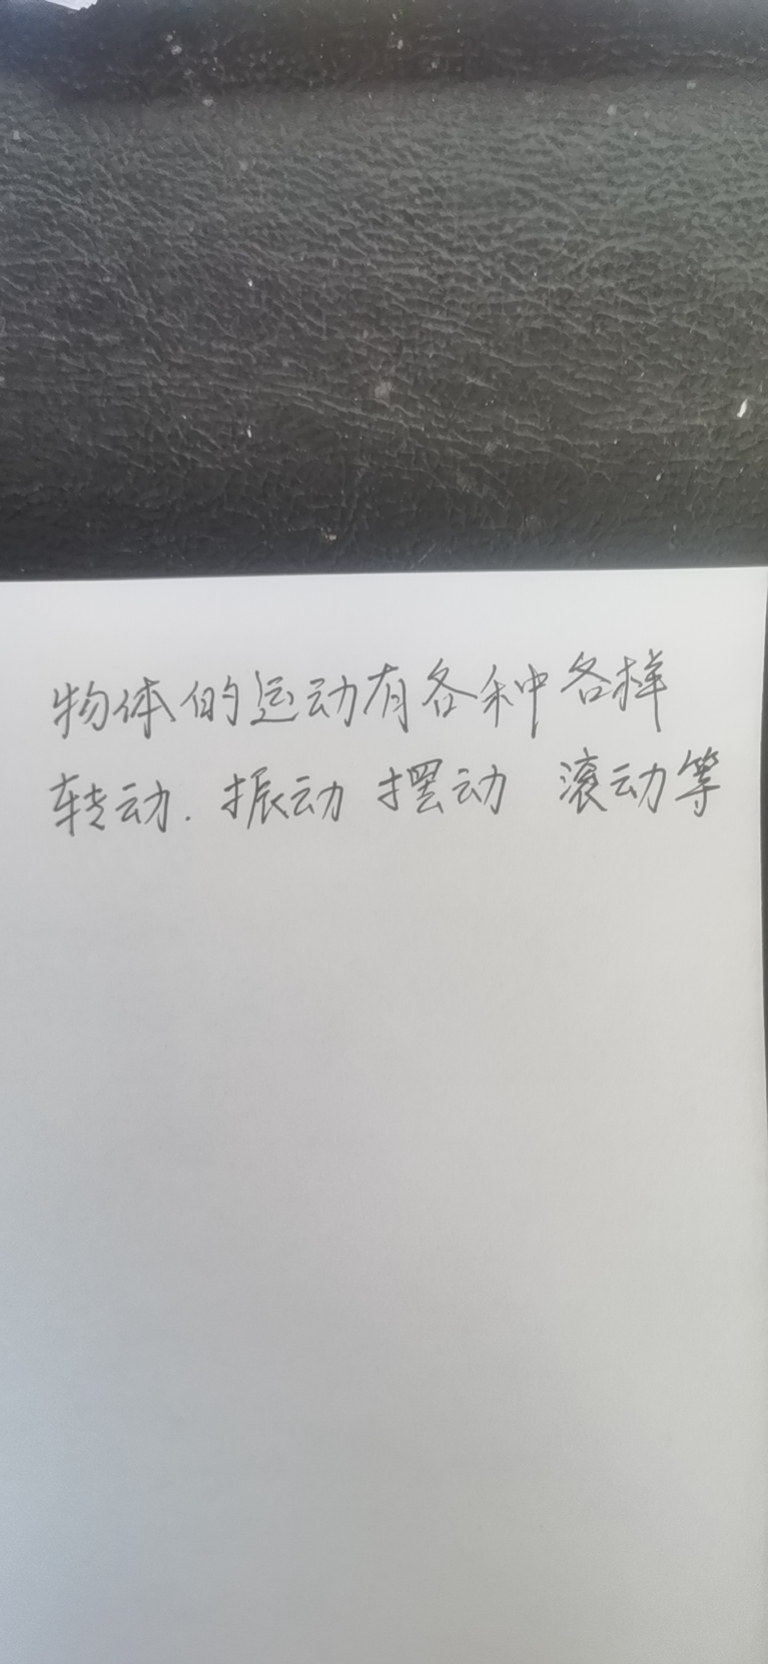 物体的运动有各种各样
转动. 振动 摆动 滚动等